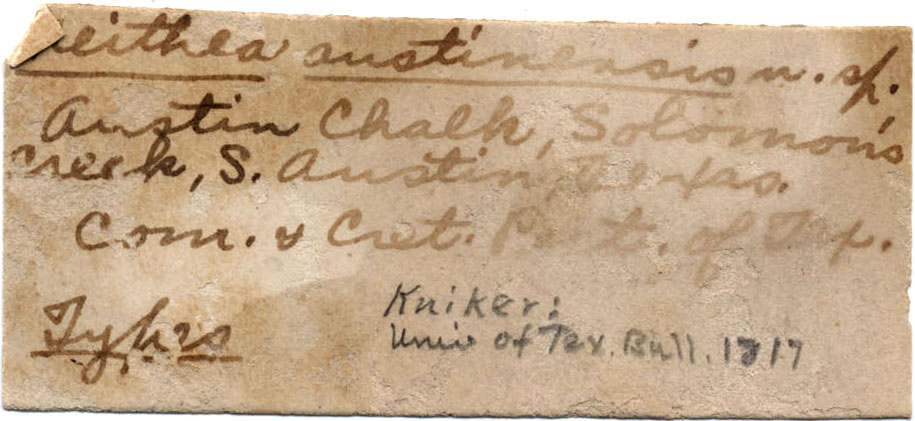 neithea austinensis n. sp.
Austin Chalk, Solomon's
Creek, S. Austin, Texas.
Com. & Cret. Pect. of Tex.
Types
Kniker:
Univ of Tex. Bull. 1817